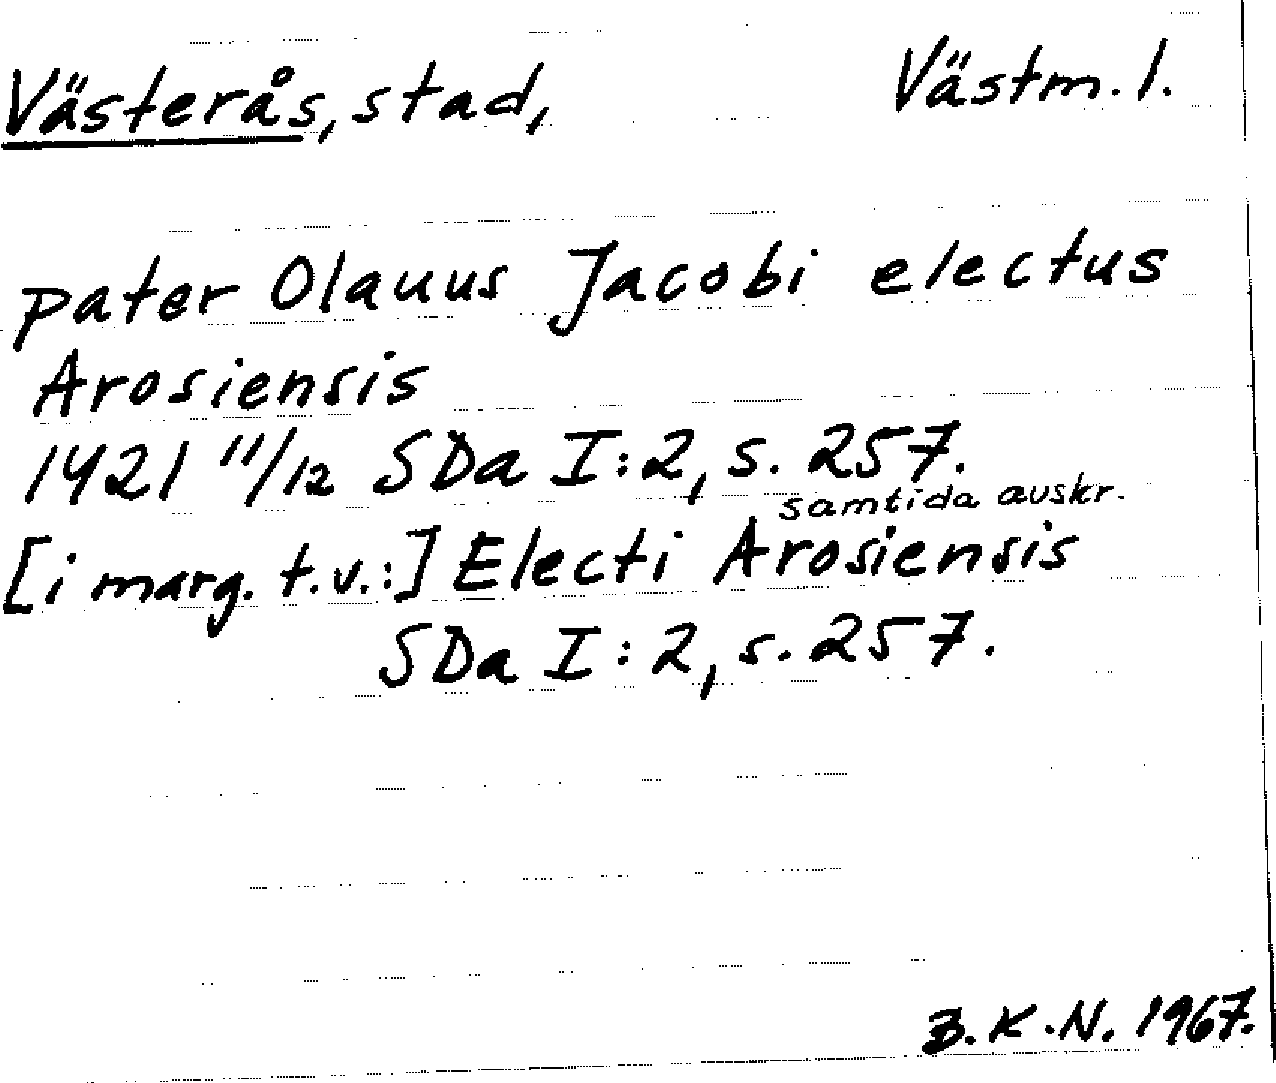 Västerås, stad, Västm. l.
pater Olauus Jacobi electus
Arosiensis
1421 11/12 SDa I:2, s. 257.
samtida avskr.
[i marg. t.v.:] Electi Arosiensis
SDa I:2, s. 257.
B.K.N. 1967.